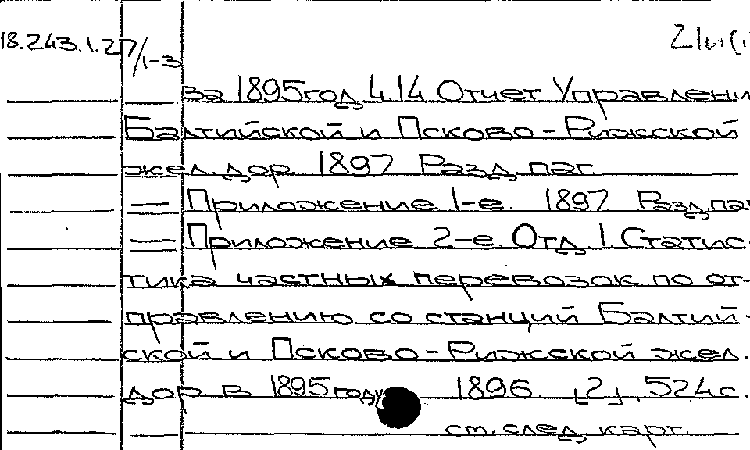 18.243.1.27/1-3
За 1895 год 4.14 Отчет Управлени
Балтийской и Псково-Рижской
жел. дор 1897 Разд. паг.
— Приложение 1-е. 1897 Разд. паг
— Приложение 2-е Отд. 1. Статис-
тика частных перевозок по от-
правлению со станций Балтий-
ской и Псково-Рижской жел.
дор в 1895 году 1896. [2], 524 с.
см. след. карт.